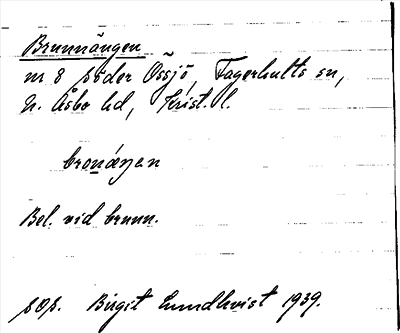 Brunnängen
nr 8 söder Össjö, Fagerhults sn,
N. Åsbo hd, Krist. l.
bronæŋen
Bel. vid brunn.
sop. Birgit Lundkvist 1939.